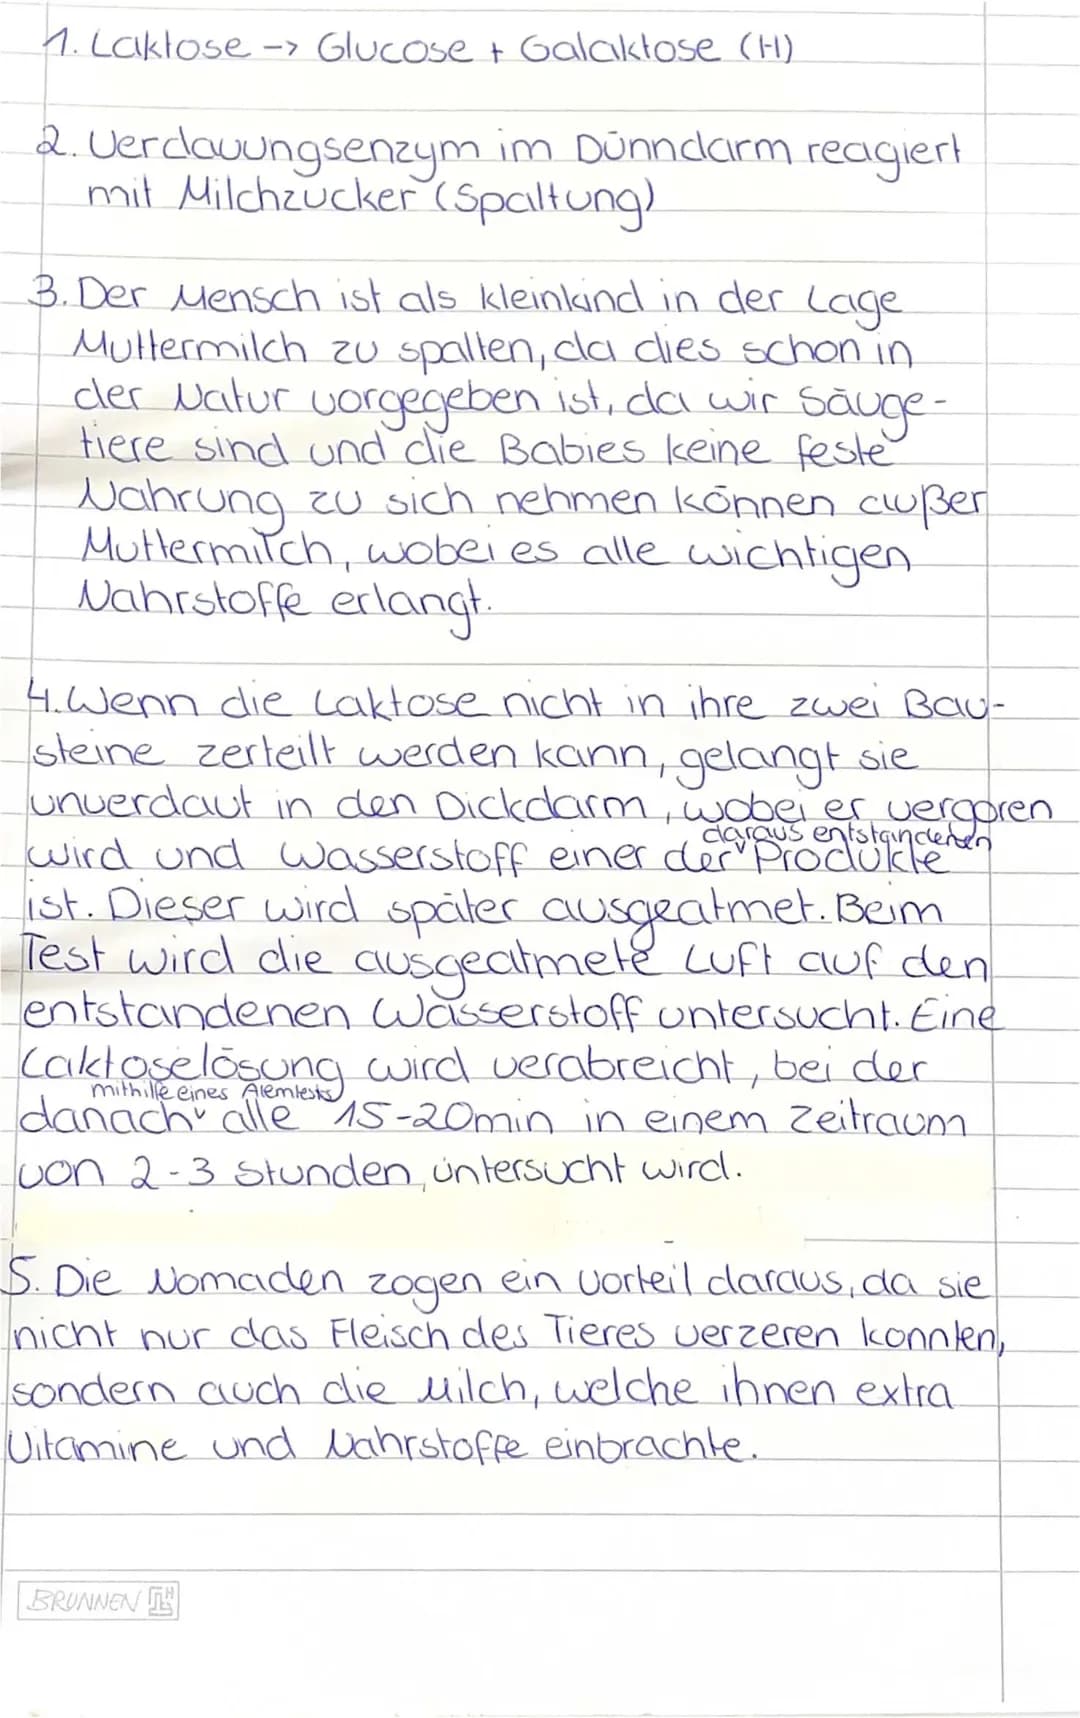 1. Laktose -> Glucose + Galaktose (H)
2. Verdauungsenzym im Dünndarm reagiert
mit Milchzucker (Spaltung)
3. Der Mensch ist als Kleinkind in der Lage
Muttermilch zu spalten, da dies schon in
der Natur vorgegeben ist, da wir Säuge-
tiere sind und die Babies keine feste
Nahrung zu sich nehmen können außer
Muttermilch, wobei es alle wichtigen
Nahrstoffe erlangt.
4. Wenn die Laktose nicht in ihre zwei Bau-
steine zerteilt werden kann, gelangt sie
unverdaut in den Dickdarm, wobei er vergoren
daraus entstandenen
wird und Wasserstoff einer der Produkte
ist. Dieser wird später ausgeatmet. Beim
Test wird die ausgeatmete Luft auf den
entstandenen Wasserstoff untersucht. Eine
Laktoselösung wird verabreicht, bei der
mithilfe eines Atemtests
danach alle 15-20min in einem Zeitraum
von 2-3 Stunden, untersucht wird.
5. Die Nomaden zogen ein Vorteil daraus, da sie
nicht nur das Fleisch des Tieres verzeren konnten,
sondern auch die Milch, welche ihnen extra
Vitamine und Nahrstoffe einbrachte.
BRUNNEN